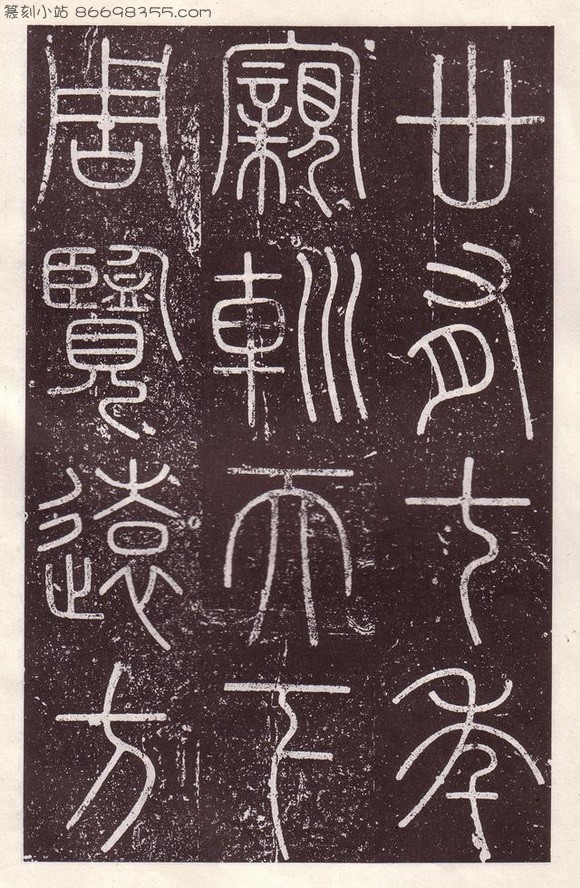 篆刻小站 86698355.com
卅有七年
寴䡅天下
周覽遠方